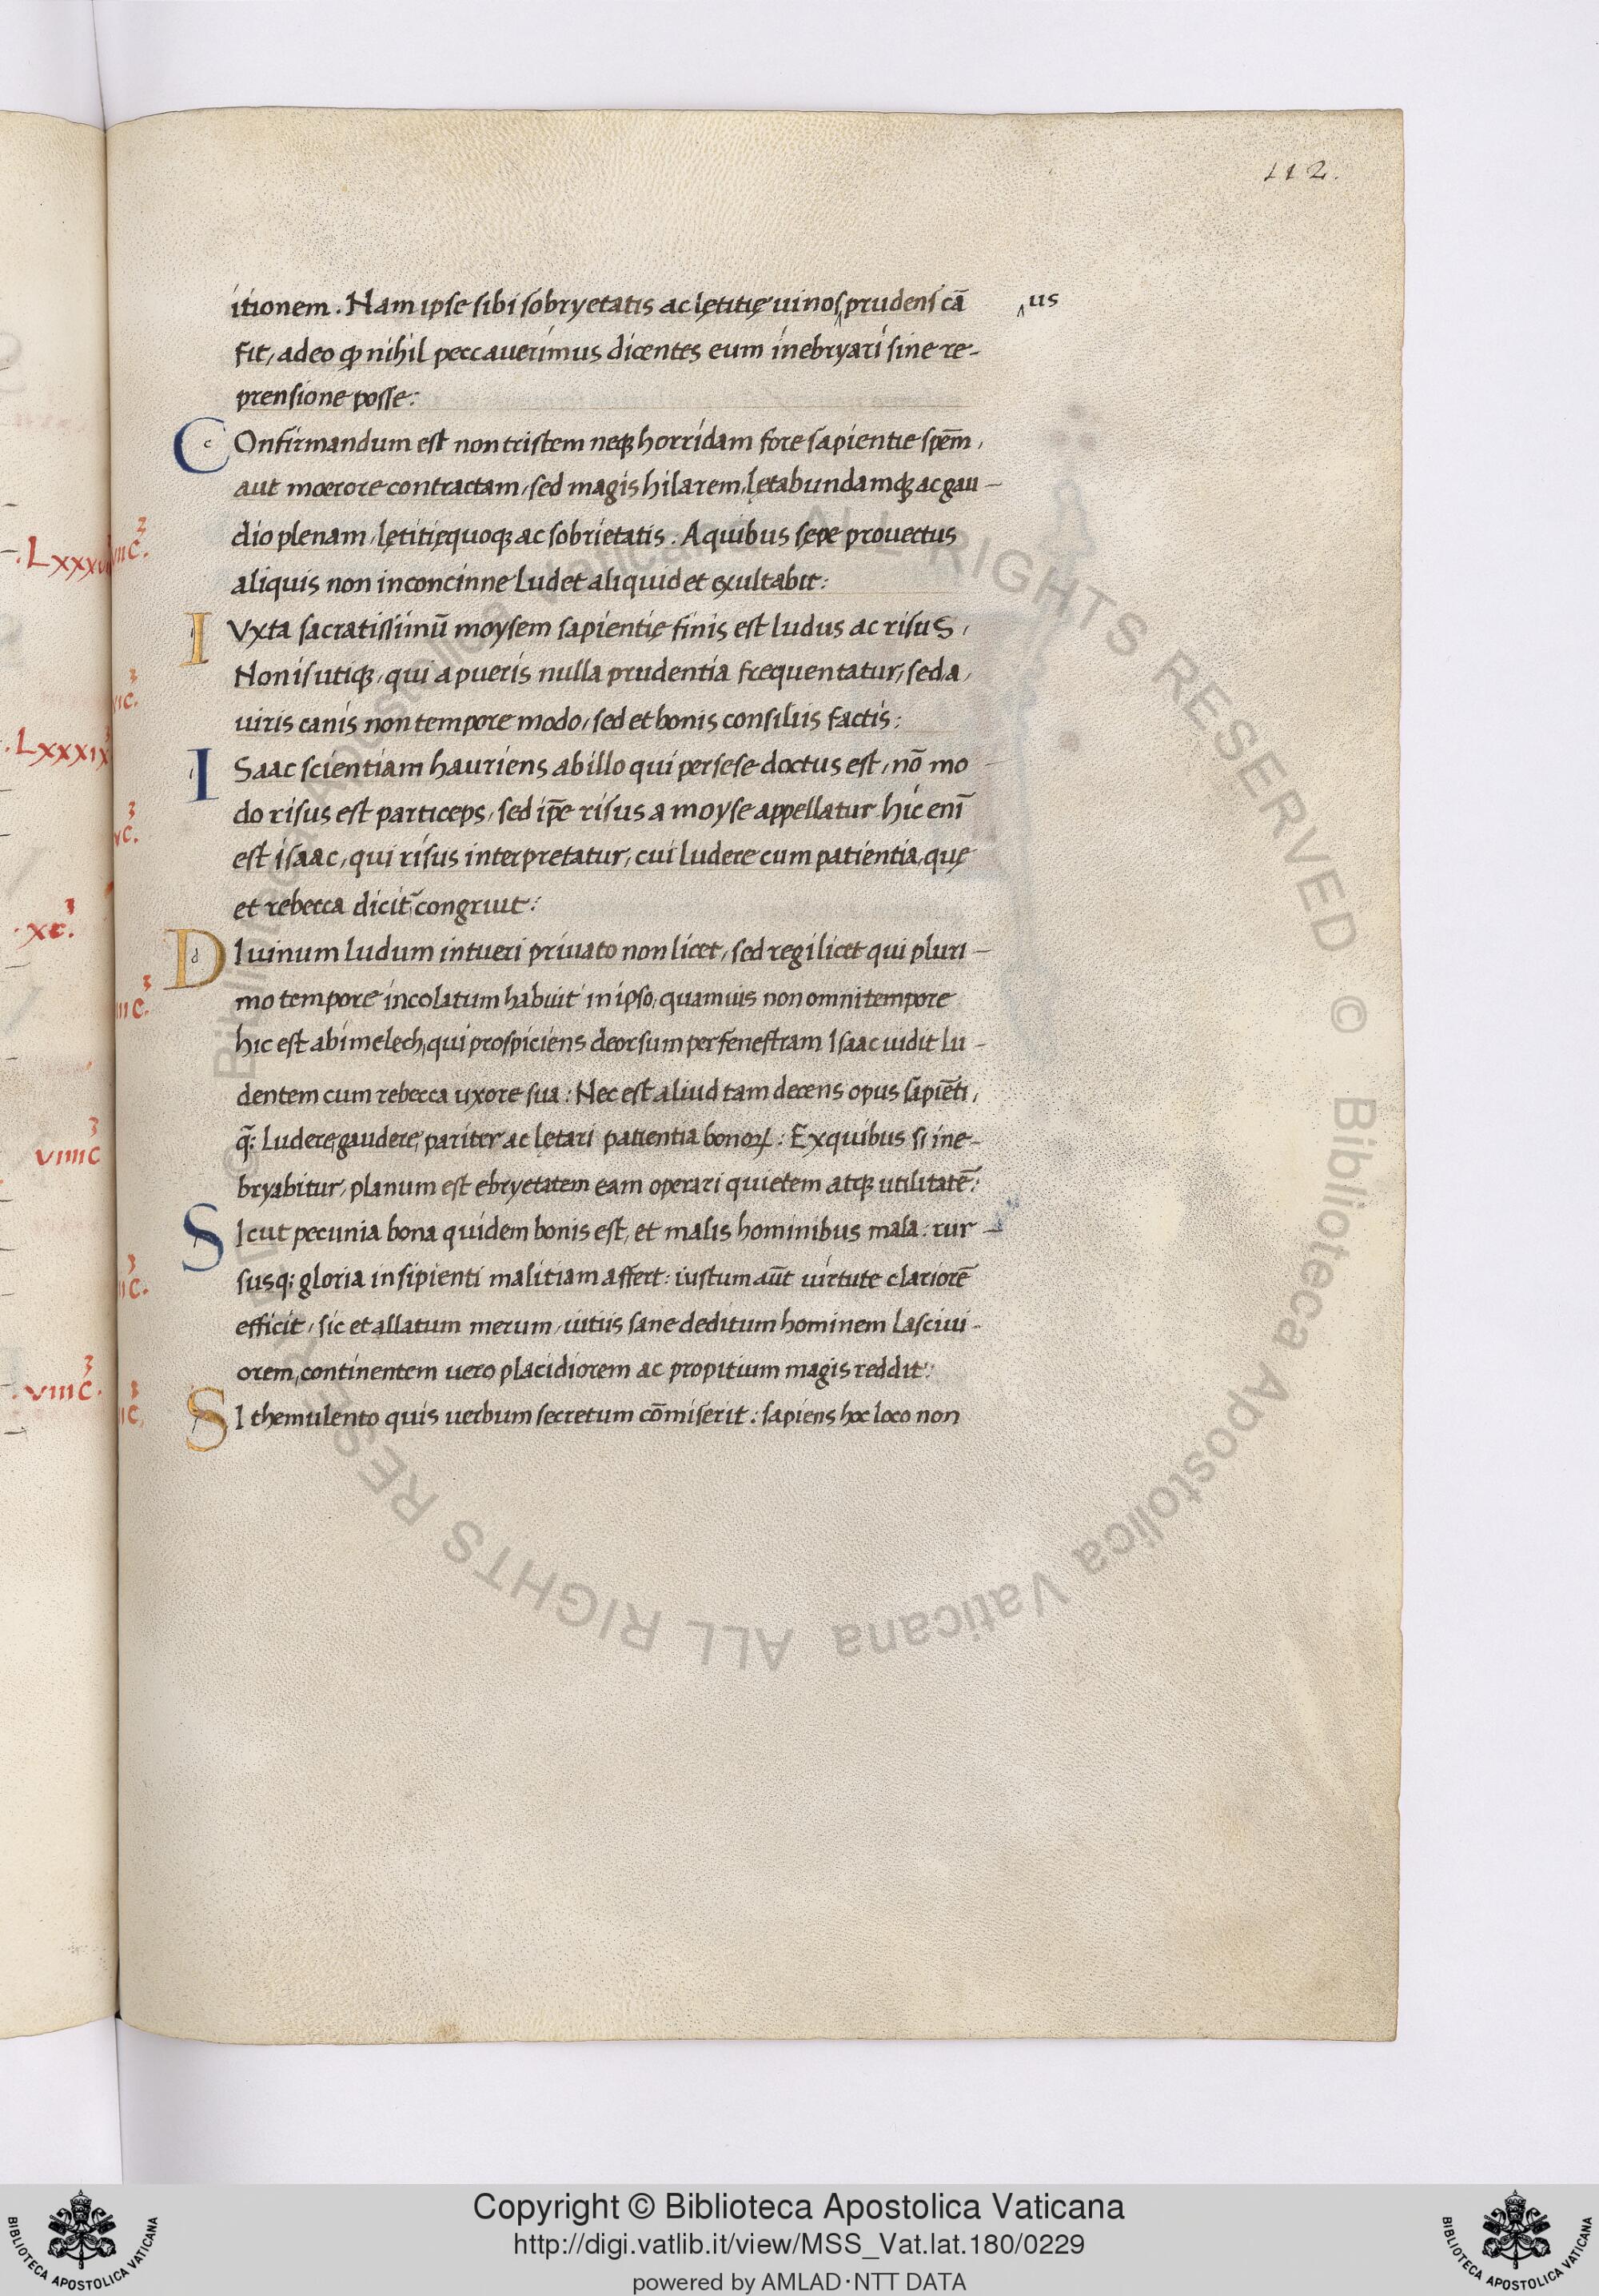 112.
itionem. Nam ipse sibi sobryetatis ac lętitię uinos‸prudens cā ‸us
fit, adeo ꝙ nihil peccauerimus dicentes eum inebryari sine re-
prensione posse:
C c Onfirmandum est non tristem neqꝫ horridam fore sapientie spēm,
aut moerore contractam, sed magis hilarem, lętabundamqꝫ ac gau-
dio plenam, lętitięquoqꝫ ac sobrietatis. A quibus sępe prouectus
aliquis non inconcinne Ludet aliquid et exultabit:
I Vxta sacratissimū moysem sapientię finis est ludus ac risus,
Non is utiqꝫ, qui a pueris nulla prudentia frequentatur, sed a,
uiris canis non tempore modo, sed et bonis consiliis factis:
I Saac scientiam hauriens ab illo qui per sese doctus est, nō mo-
do risus est particeps, sed ip̄e risus a moyse appellatur. hic enī
est isaac, qui risus interpretatur, cui ludere cum patientia, quę
et rebecca dicit̃ congruit:
D d Iuinum ludum intueri priuato non licet, sed regi licet qui pluri-
mo tempore incolatum habuit in ipso, quamuis non omni tempore
hic est abimelech, qui prospiciens deorsum per fenestram Isaac uidit lu-
dentem cum rebecca uxore sua: Nec est aliud tam decens opus sapiēti,
q̃: Ludere, gaudere, pariter ac lętari patientia bonoꝝ: Ex quibus si ine-
bryabitur, planum est ebryetatem eam operari quietem atqꝫ utilitatē:
S Icut pecunia bona quidem bonis est, et malis hominibus mala: rur-
susq; gloria insipienti malitiam affert: iustum aūt uirtute clariorē
efficit, sic et allatum merum, uitiis sane deditum hominem Lasciui-
orem, continentem uero placidiorem ac propitium magis reddit:
S I themulento quis uerbum secretum cōmiserit: sapiens hoc loco non
.Lxxxv
.Lxxxix
.xc.
viiiic
.viiic.
© Biblioteca Apostolica Vaticana ALL RIGHTS RESERVED © Biblioteca Apostolica Vaticana ALL RIGHTS RESERVED
Copyright © Biblioteca Apostolica Vaticana
http://digi.vatlib.it/view/MSS_Vat.lat.180/0229
powered by AMLAD·NTT DATA
BIBLIOTECA APOSTOLICA VATICANA
BIBLIOTECA APOSTOLICA VATICANA